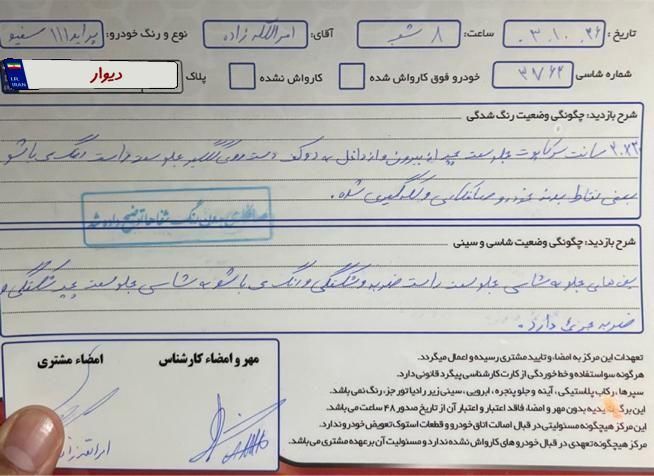 تاریخ: ۰۳.۱۰.۲۶ ساعت: ۸ شب آقای: نوع و رنگ خودرو: پراید ۱۱۱ سفید
شماره شاسی ۳۷۶۲ خودرو فوق کارواش شده کارواش نشده پلاک دیوار
I.R. IRAN
شرح بازدید: چگونگی وضعیت رنگ شدگی
سانت سر کاپوت جلو سمت چپ از بیرون و از داخل به دو تکه دست روی گلگیر جلو سمت راست رنگ می باشد
بعضی نقاط بدنه خودرو صافکاری و لکه گیری شده.
صافکاری بدون رنگ توضیح داده شد
شرح بازدید: چگونگی وضعیت شاسی و سینی
جلو به شاسی جلو سمت راست ضربه و شکستگی و رنگ می باشد به شاسی جلو سمت چپ شکستگی و
ضربه جزئی دارد.
مهر و امضاء کارشناس
امضاء مشتری
تعهدات این مرکز به امضاء و تایید مشتری رسیده و اعمال میگردد.
هرگونه سواستفاده و خط خوردگی از کارت کارشناسی پیگرد قانونی دارد.
سپرها، رکاب پلاستیکی، آینه و جلو پنجره، ابرویی، سینی زیر رادیاتور جز، رنگ نمی باشد.
این برگه تاییدیه بدون مهر و امضاء، فاقد اعتبار و اعتبار آن از تاریخ صدور ۴۸ ساعت می باشد.
این مرکز هیچگونه مسئولیتی در قبال اصالت اتاق خودرو و قطعات استوک تعویض خودرو ندارد.
مرکز هیچگونه تعهدی در قبال خودرو های کارواش نشده ندارد و مسئولیت آن بر عهده مشتری می باشد.